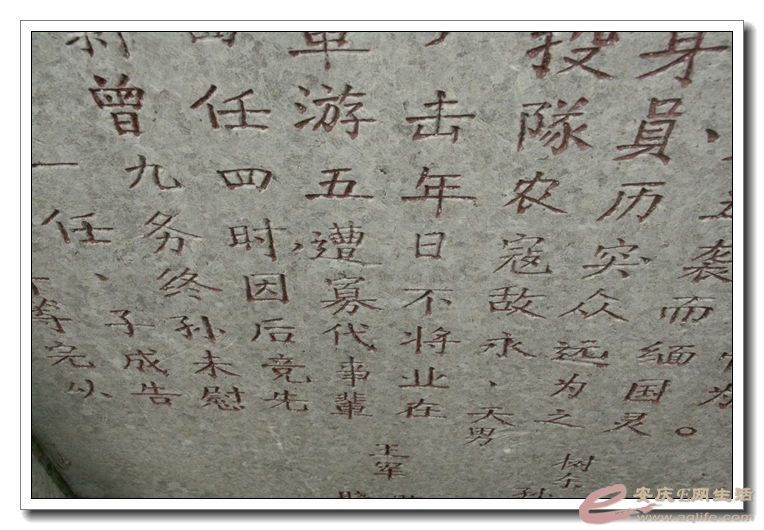 投身
曾任游击隊員、
一九四五年农历五
任务时,遭日寇突袭
、终因寡不敌众而
等子孙后代将永远缅
完成未竟事业、为国为
以告慰先辈在天之灵。
男
王军
树
孙
安庆E网生活
www.aqlife.com